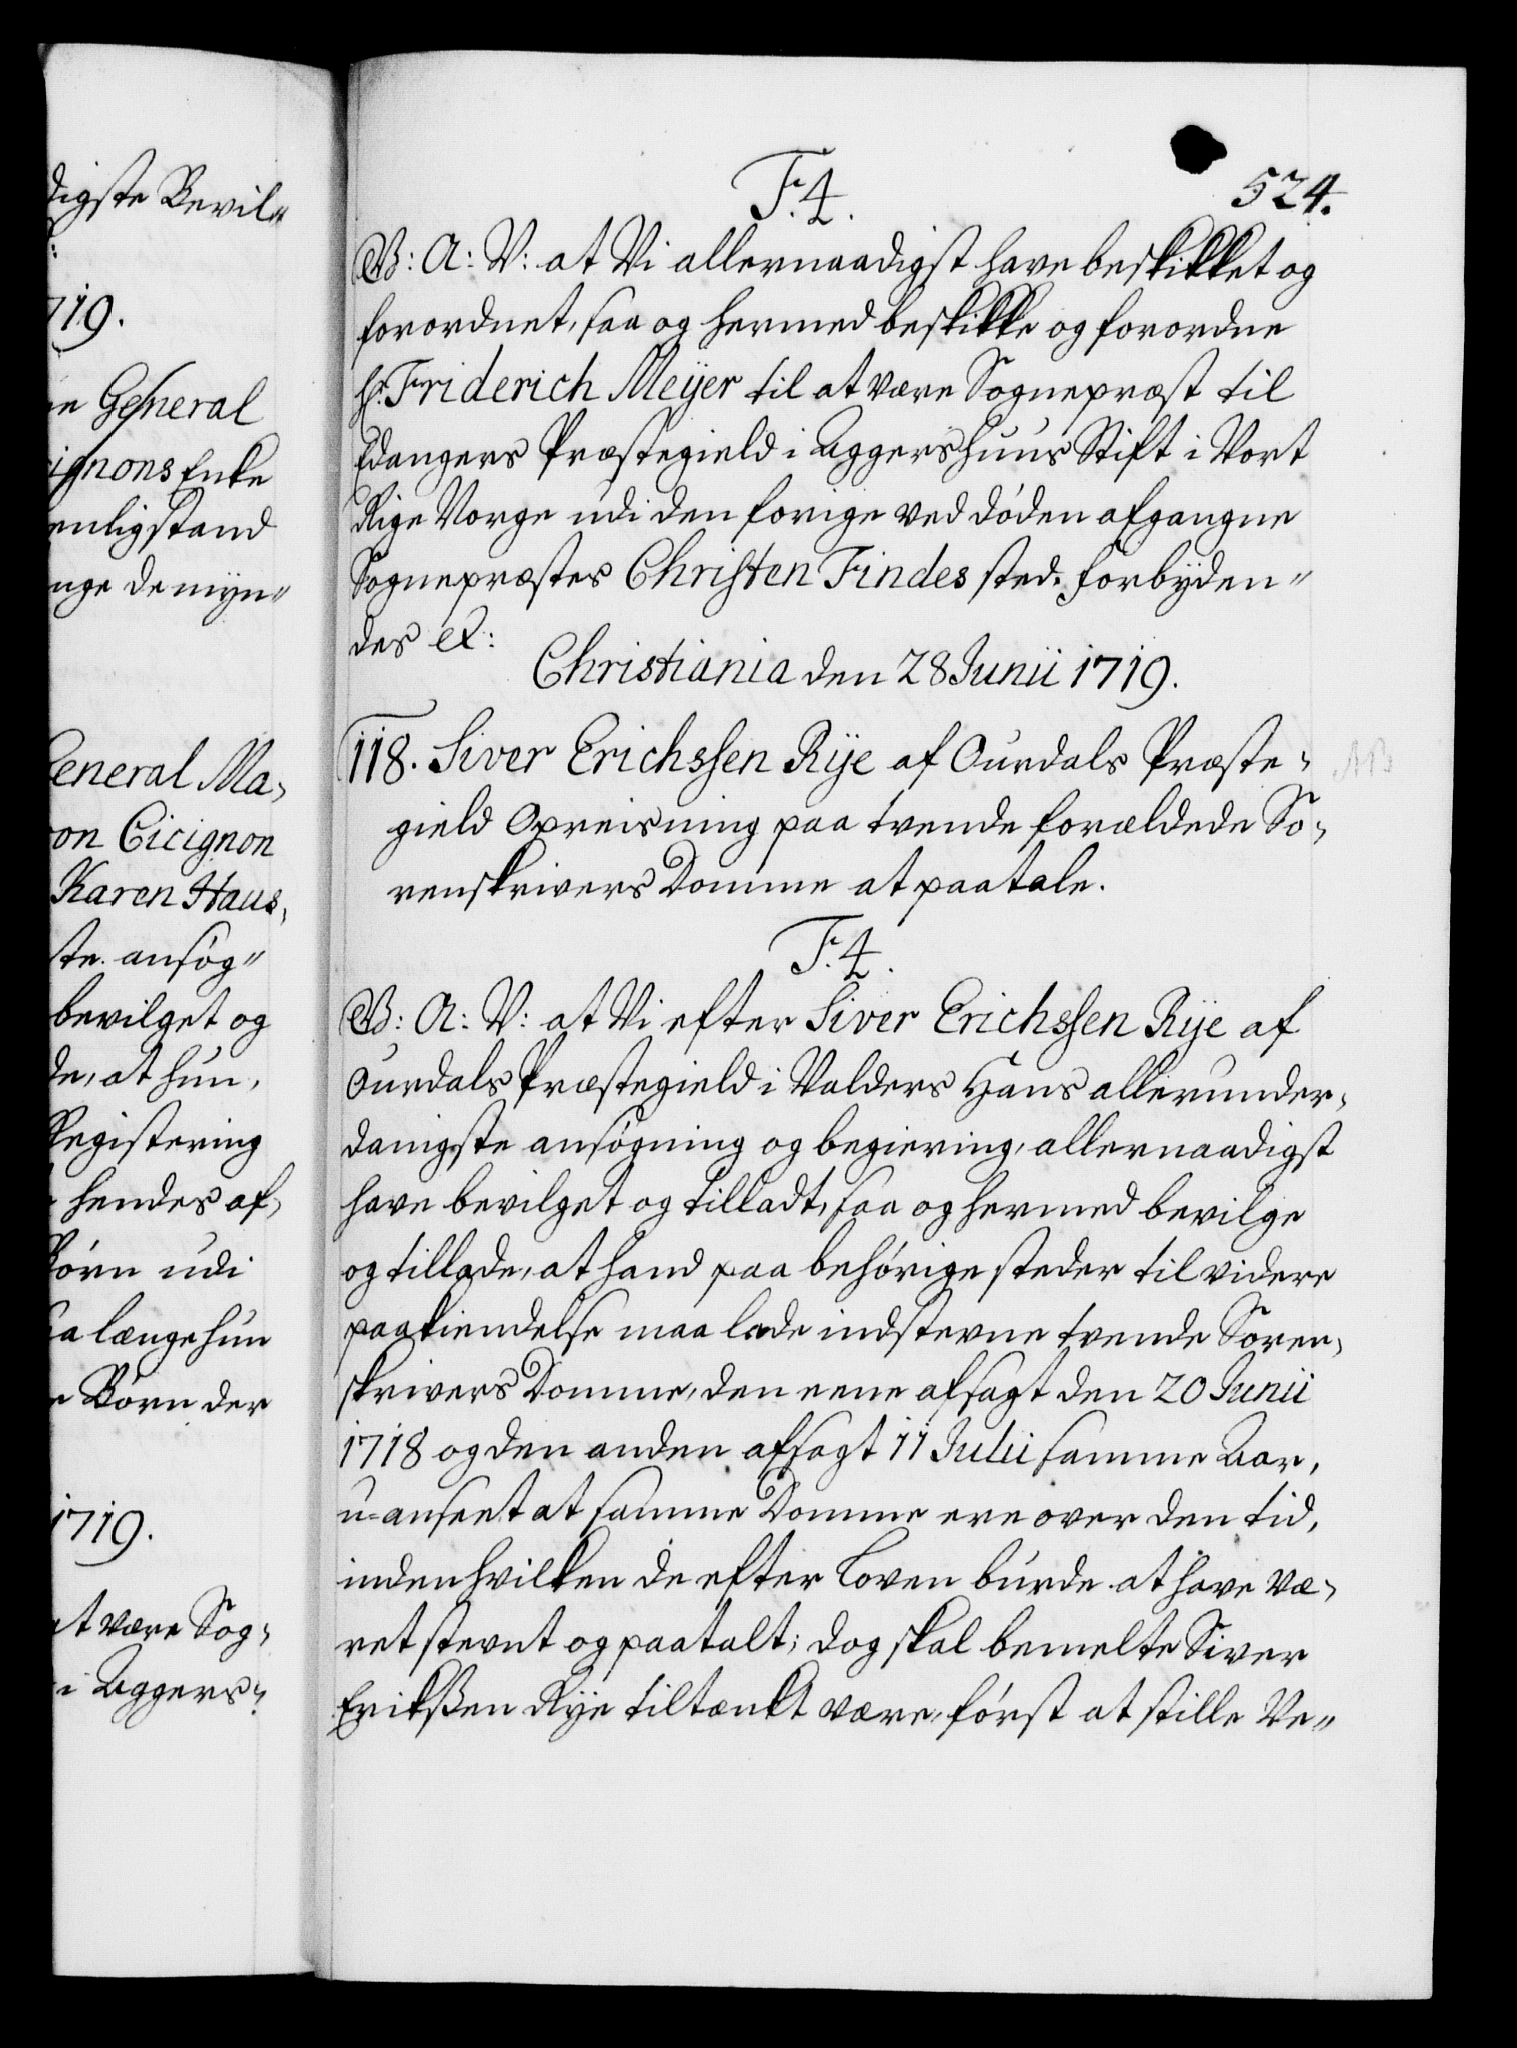 digste Bevil„
719.
General
ignons Enke
enlig stand
nge de myn„
General Ma„
on Cicignon
Karen Haus„
ste ansøg„
bevilget og
de, at hun,
Registering
hendes af„
Børn udi
længe hun
Børn der
1719.
at være Sog„
i Aggers„
524.
F. 4.
G: A: V: at Vi allernaadigst have beskikket og
forordnet, saa og hermed beskikke og forordne
Hr. Friderich Meÿer til at være Sognepræst til
Edangers Præstegield i Aggershuus Stift i Vort
Rige Norge udi den forige ved døden afgangne
Sognepræstes Christen Findes sted. Forbÿden„
des et:
Christiania den 28 Junii 1719.
118. Siver Erichssen Rÿe af Ourdals Præste„
gield Opreisning paa tvende forældede So„
renskrivers Domme at paatale.
F. 4.
G: A: V: at Vi efter Siver Erichssen Rÿe af
Ourdals Præstegield i Valders Hans allerunder„
danigste ansøgning og begiering, allernaadigst
have bevilget og tilladt, saa og hermed bevilge
og tillade, at hand paa behørige steder til videre
paakiendelse maa lade indstevne tvende Soren„
skrivers Domme, den eene afsagt den 20 Junii
1718 og den anden afsagt 11 Julii samme Aar,
u-anseet at samme Domme ere over den tid,
inden hvilken de efter Loven burde at have væ„
ret stevnt og paatalt; dog skal bemelte Siver
Erikßen Rÿe tiltænkt være, først at stille Ve„